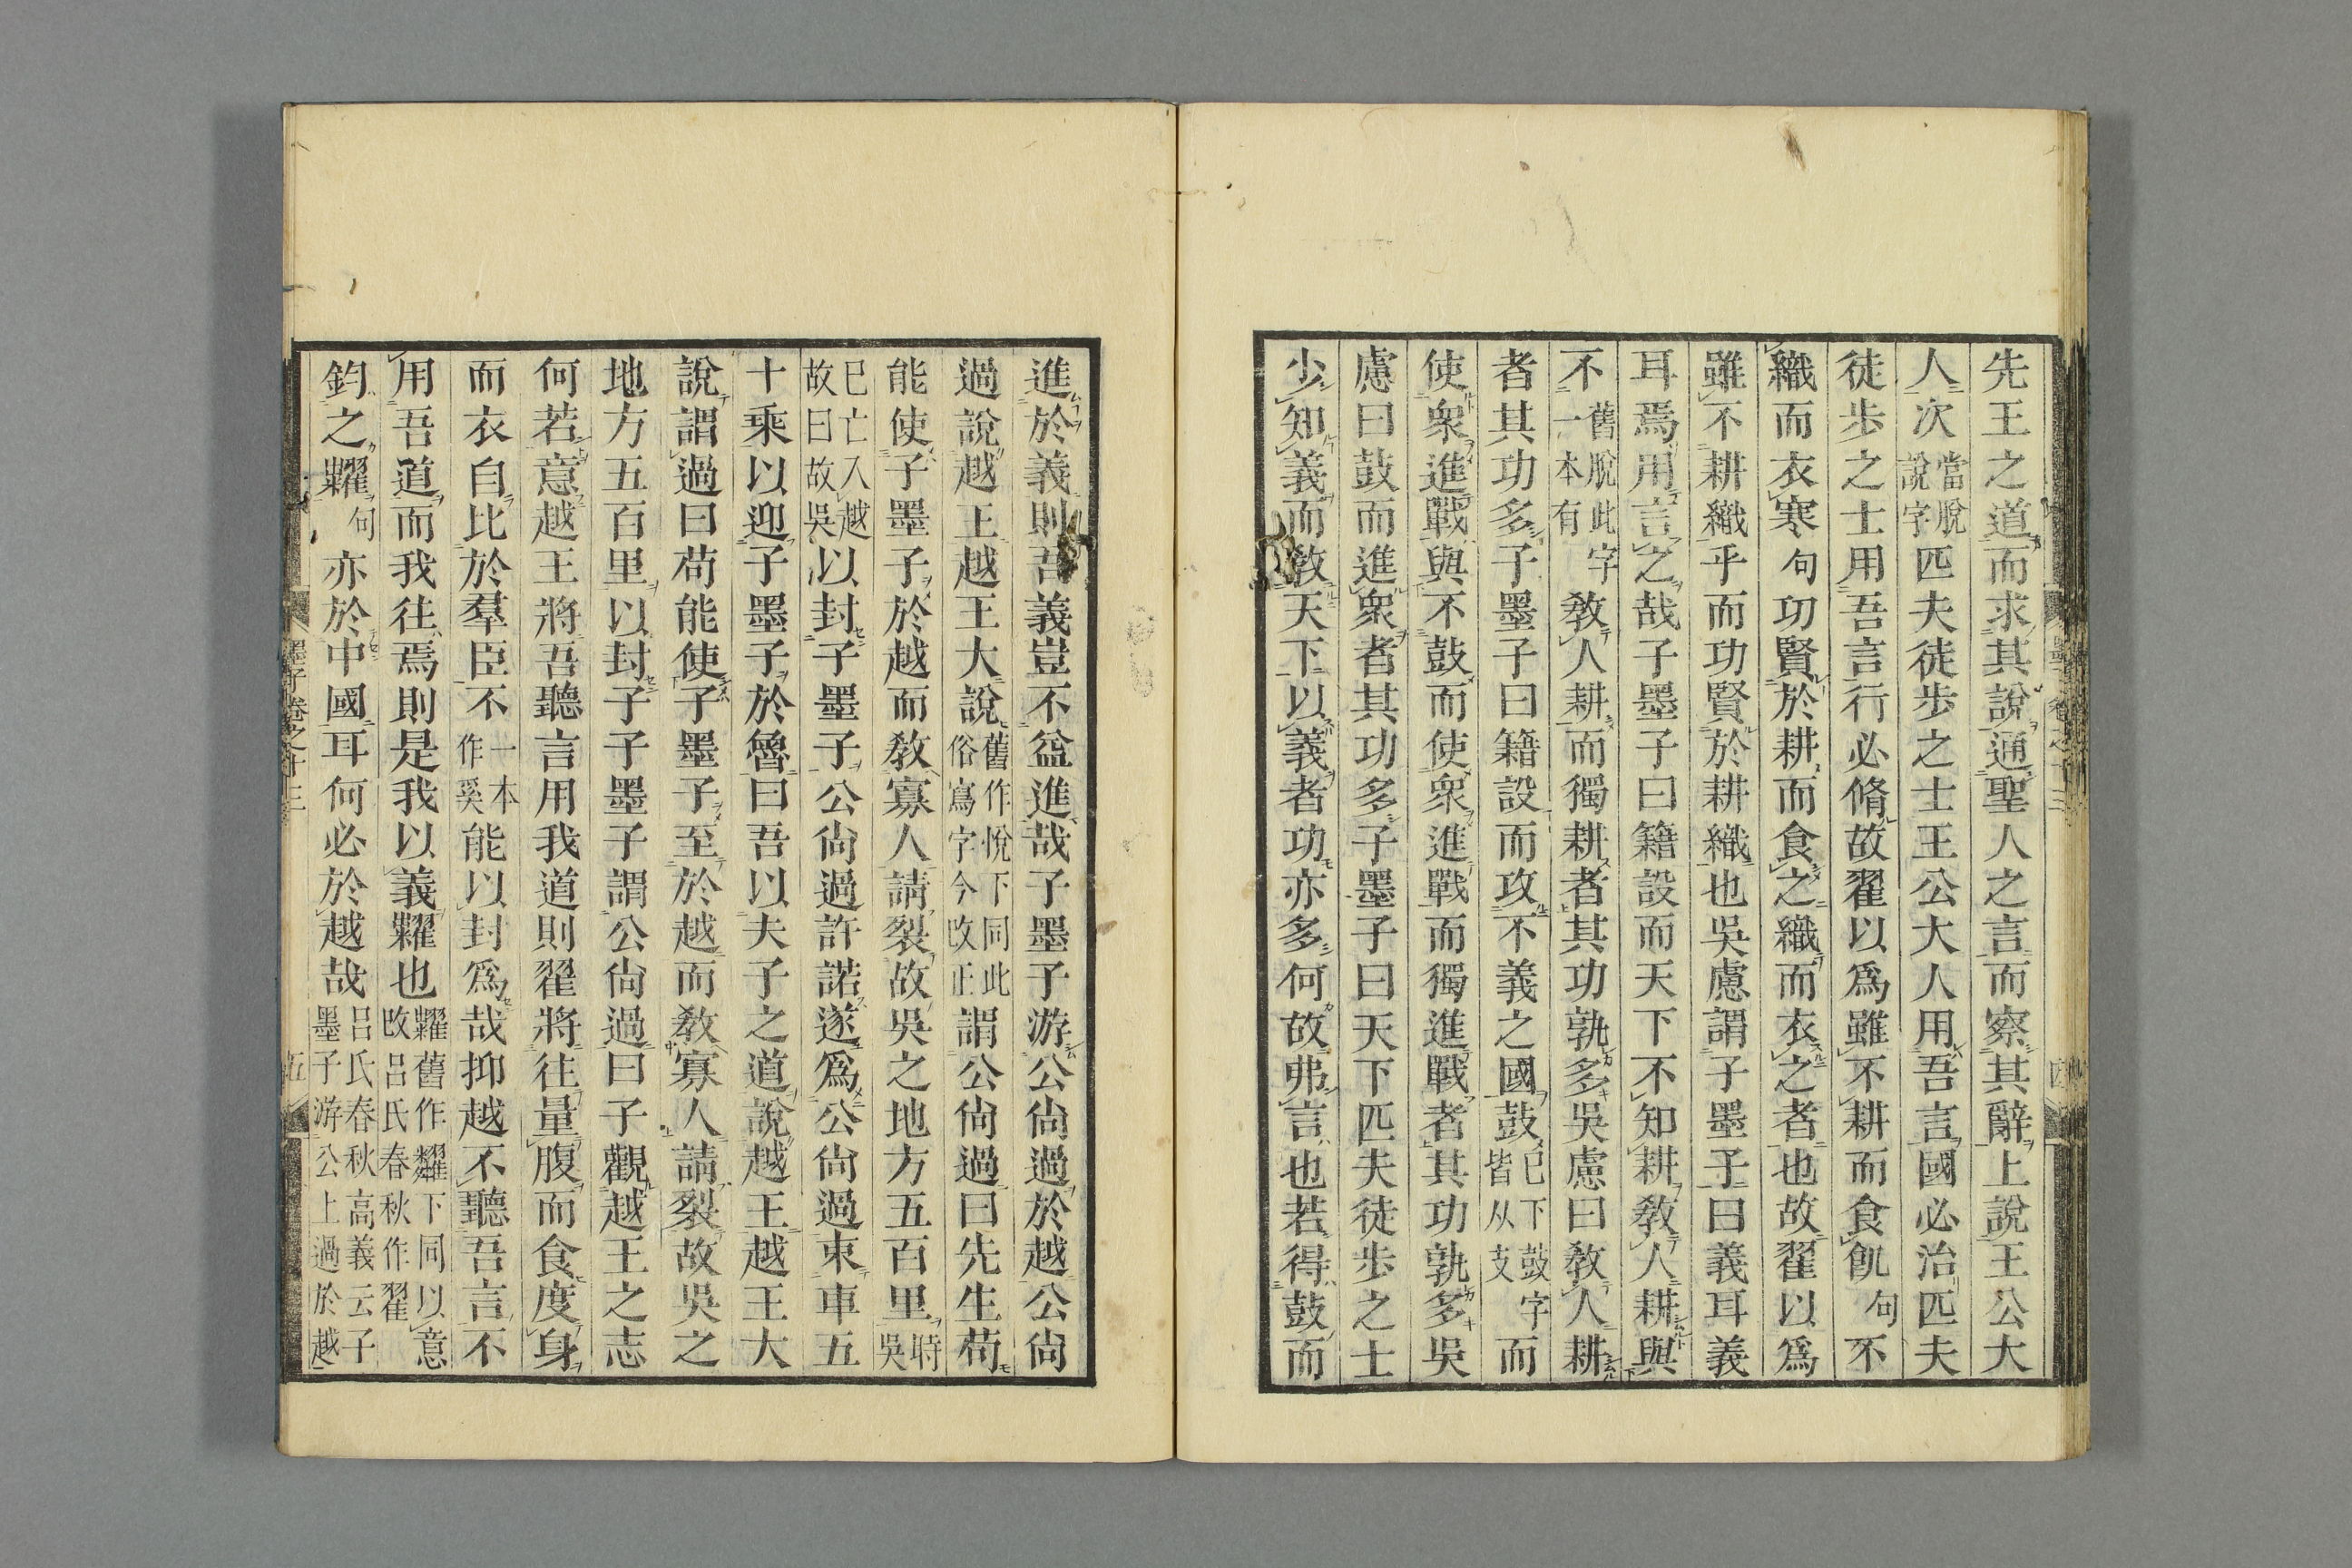 先王之道而求其說通聖人之言而察其辭上說王公大
人次當脫說字匹夫徒步之士王公大人用吾言國必治匹夫
徒步之士用吾言行必脩故翟以爲雖不耕而食飢句不
織而衣寒句功賢於耕而食之織而衣之者也故翟以爲
雖不耕織乎而功賢於耕織也吳慮謂子墨子曰義耳義
耳焉用言之哉子墨子曰籍設而天下不知耕敎人耕與
不舊脫此字一本有敎人耕而獨耕者其功孰多吳慮曰敎人耕
者其功多子墨子曰籍設而攻不義之國鼓已下鼓字皆从支而
使衆進戰與不鼓而使衆進戰而獨進戰者其功孰多吳
慮曰鼓而進衆者其功多子墨子曰天下匹夫徒步之士
少知義而敎天下以義者功亦多何故弗言也若得鼓而
進於義則吾義豈不益進哉子墨子游公尙過於越公尙
過說越王越王大說舊作悅下同此俗寫字今改正謂公尙過曰先生苟
能使子墨子於越而敎寡人請裂故吳之地方五百里時吳
已亡入越故曰故吳以封子墨子公尙過許諾遂爲公尙過束車五
十乘以迎子墨子於魯曰吾以夫子之道說越王越王大
說謂過曰苟能使子墨子至於越而敎寡人請裂故吳之
地方五百里以封子子墨子謂公尙過曰子觀越王之志
何若意越王將吾聽言用我道則翟將往量腹而食度身
而衣自比於羣臣不一本作奚能以封爲哉抑越不聽吾言不
用吾道而我往焉則是我以義糶也糶舊作糴下同以意改呂氏春秋作翟
鈞之糶句亦於中國耳何必於越哉呂氏春秋高義云子墨子游公上過於越
墨子卷之十三
五